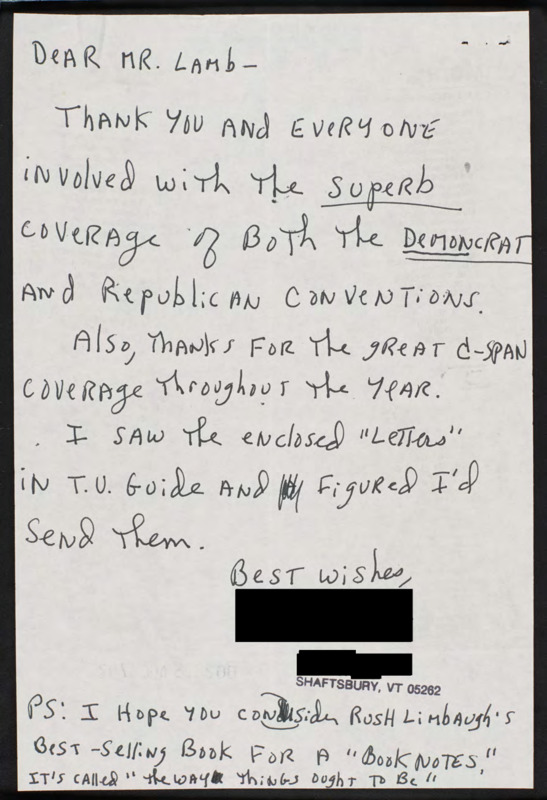 DEAR MR. LAMB-
THANK YOU AND EVERYONE
involved with the superb
COVERAGE of BOTH THE DEMONCRAT
AND REPUBLICAN CONVENTIONS.
Also, THANKS FOR THE GREAT C-SPAN
COVERAGE THROUGHOUT THE YEAR.
I SAW THE enclosed "LETTERS"
IN T.V. GUIDE AND FIGURED I'd
Send Them.
BEST wishes,
SHAFTSBURY, VT 05262
PS: I HOPE YOU consider RUSH LIMBAUGH'S
BEST-Selling BOOK FOR A "BOOK NOTES,"
IT'S CALLED "THE WAY THINGS OUGHT TO BE"